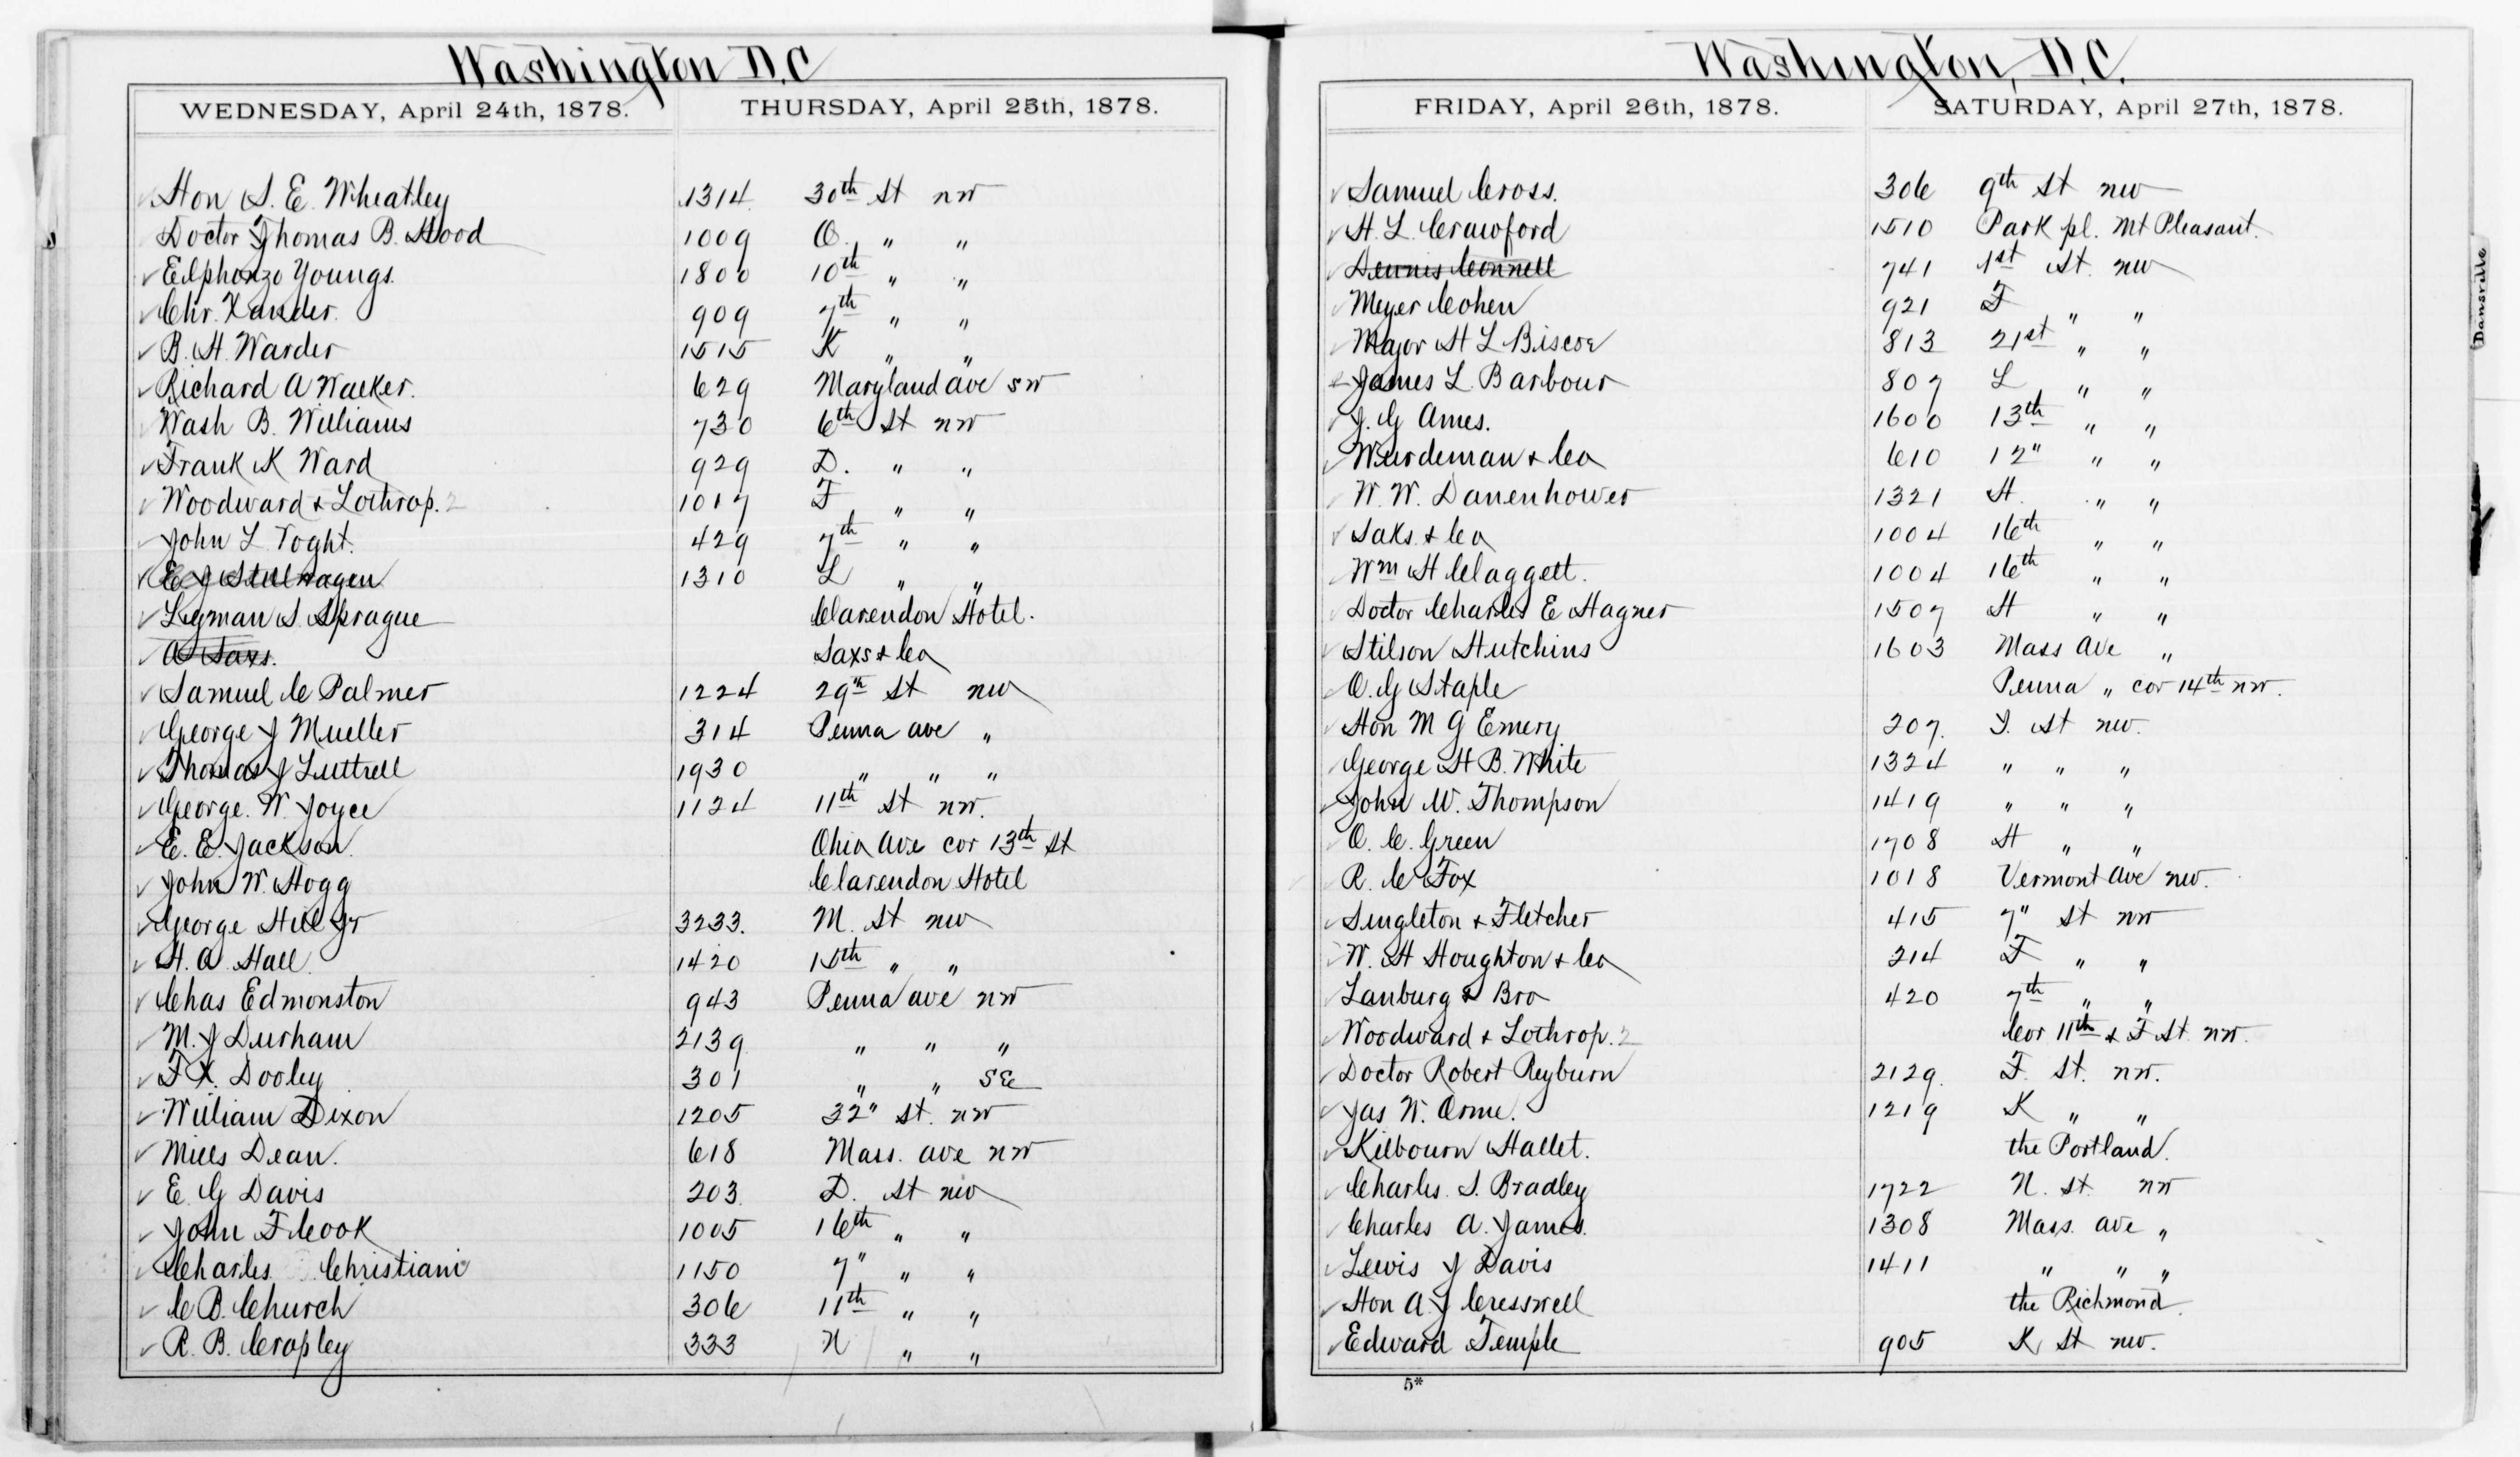 Washington D.C
WEDNESDAY, April 24th, 1878. THURSDAY, April 25th, 1878.
Hon S. E. Wheatley 1314 30th St nw
Doctor Thomas B. Hood 1009 O. " "
Elphonzo Youngs. 1800 10th " "
Chr. Xander. 909 7th " "
B. H. Warder 1515 K " "
Richard A Walker. 629 Maryland ave sw
Wash B. Williams 730 6th St nw
Frank K Ward 929 D. " "
Woodward & Lothrop. 2 1017 F " "
John L Voght. 429 7th " "
E J Stellwagen 1310 L " "
Lyman S. Sprague Clarendon Hotel.
A Saxs. Saxs & Co
Samuel C Palmer 1224 29th St nw
George J Mueller 314 Penna ave "
Thomas J Luttrell 1930 " " "
George. W. Joyce 1124 11th St nw.
E. E. Jackson. Ohio ave cor 13th St
John W. Hogg Clarendon Hotel
George Hill Jr 3233. M. St nw
H. A. Hall. 1420 15th " "
Chas Edmonston 943 Penna ave nw
M. J Durham 2139 " " "
F X. Dooley 301 " " SE
William Dixon 1205 32" St. nw
Mills Dean. 618 Mass. ave nw
E. G Davis 203 D. St nw
John F Cook 1005 16th " "
Charles Christiani 1150 7" " "
C B. Church 306 11th " "
R. B. Cropley 333 N " "
Washington, D.C.
FRIDAY, April 26th, 1878. SATURDAY, April 27th, 1878.
Samuel Cross. 306 9th St nw
H. L. Crawford 1510 Park pl. Mt Pleasant.
Dennis Connell 741 1st St. nw
Meyer Cohen 921 F " "
Major H L Biscoe 813 21st " "
James L. Barbour 807 L " "
J. G Ames. 1600 13th " "
Wurdeman & Co 610 12" " "
W. W. Danenhower 1321 H. " "
Saks. & Co 1004 16th " "
Wm H Claggett. 1004 16th " "
Doctor Charles E Hagner 1507 H " "
Stilson Hutchins 1603 Mass Ave "
O. G Staple Penna " cor 14th nw.
Hon M G Emery 207. I. St nw.
George H B. White 1324 " " "
John W. Thompson 1419 " " "
O. C. Green 1708 H " "
R. C Fox 1018 Vermont Ave nw.
Singleton & Fletcher 415 7" St nw
W. H Houghton & Co 214 F " "
Lanburg & Bro 420 7th " "
Woodward & Lothrop. 2 Cor 11th & F St. nw.
Doctor Robert Reyburn 2129. F. St. nw.
Jas W. Orme. 1219 K " "
Kilbourn Hallet. the Portland.
Charles. S. Bradley 1722 N. St. nw
Charles A. James. 1308 Mass. ave "
Lewis J Davis 1411 " " "
Hon A. J Cresswell the Richmond.
Edward Temple 905 K St nw.
5*
Dansville